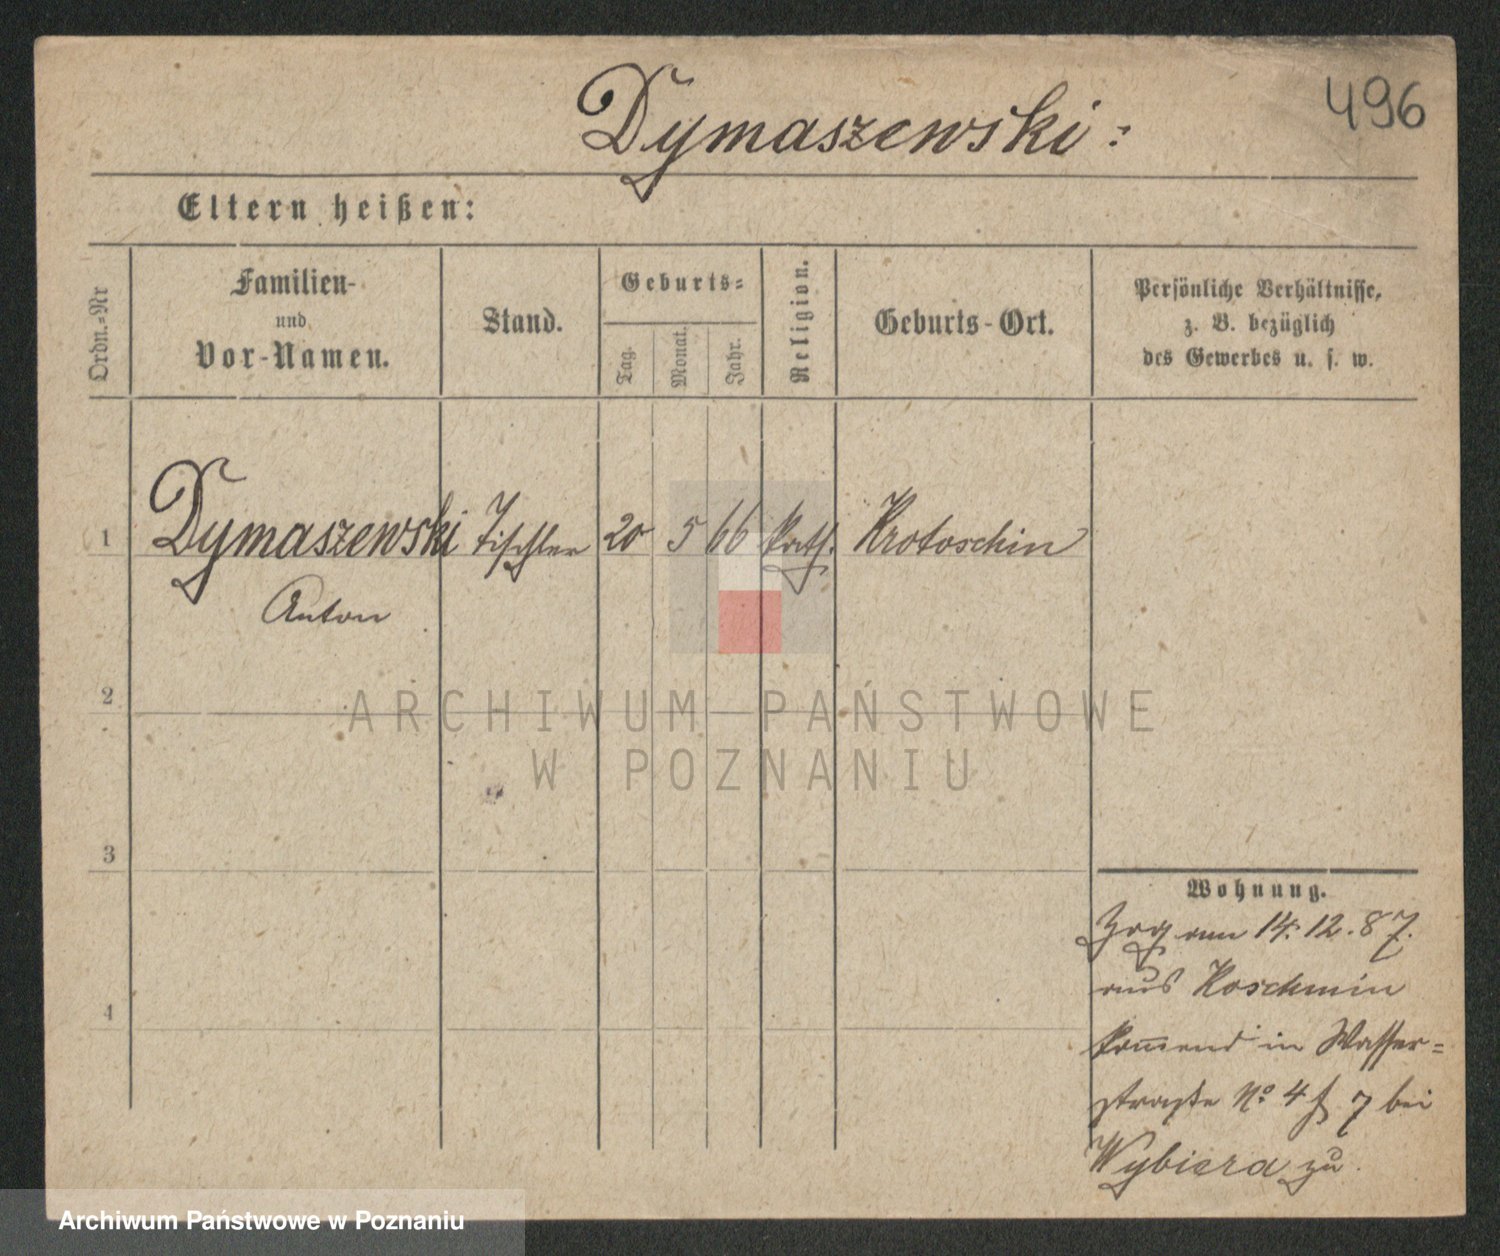 496
Dymaszewski:
Eltern heißen:
Ordn.=Nr
Familien-
und
Vor-Namen.
Stand.
Geburts=
Tag.
Monat.
Jahr.
Religion.
Geburts-Ort.
Persönliche Verhältnisse,
z. B. bezüglich
des Gewerbes u. s. w.
1 Dymaszewski Tischler 20 5 66 kath. Krotoschin
Anton
2
3
4
Wohnung.
Zog am 14. 12. 87.
aus Koschmin
komend in Wasser=
straße No 4 7 bei
Wybiera zu.
ARCHIWUM PAŃSTWOWE
W POZNANIU
Archiwum Państwowe w Poznaniu